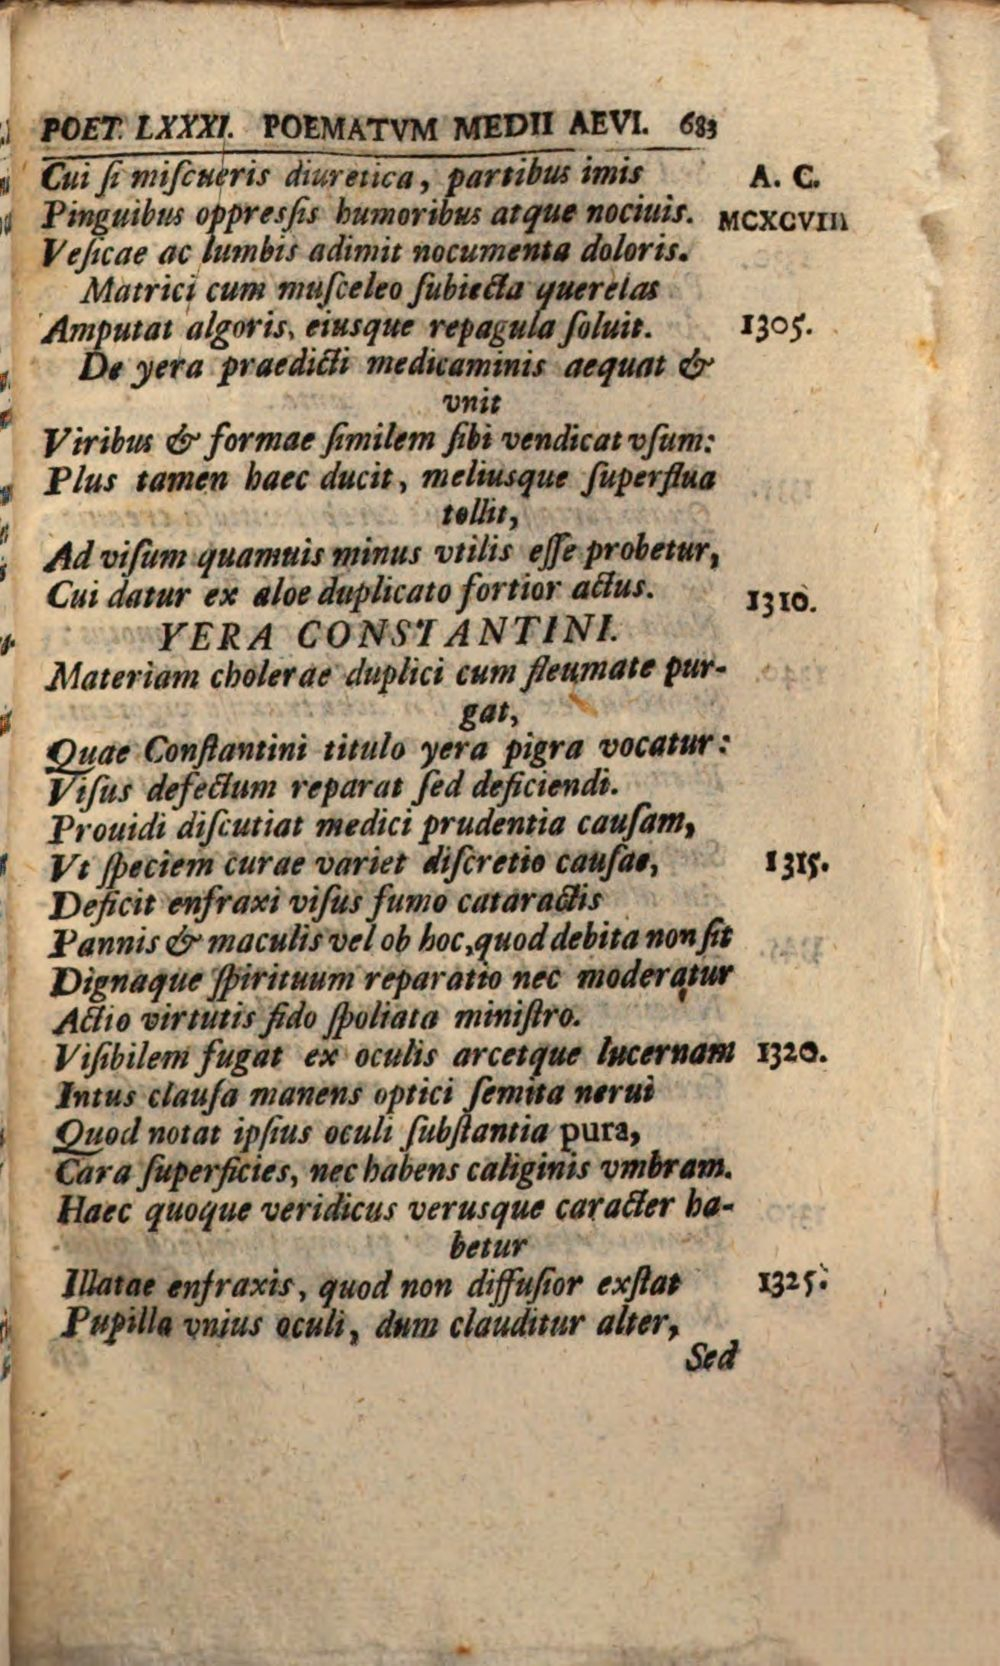 POET. LXXXI. POEMATVM MEDII AEVI. 683
Cui ſi miſcueris diuretica, partibus imis A. C.
Pinguibus oppresſis humoribus atque nociuis. MCXCVIII
Veſicae ac lumbis adimit nocumenta doloris.
Matrici cum muſceleo ſubiecta querelas
Amputat algoris, eiusque repagula ſoluit. 1305.
De yera praedicti medicaminis aequat &
vnit
Viribus & formae ſimilem ſibi vendicat vſum:
Plus tamen haec ducit, meliusque ſuperflua
tollit,
Ad viſum quamuis minus vtilis eſſe probetur,
Cui datur ex aloe duplicato fortior actus. 1310.
YERA CONSTANTINI.
Materiam cholerae duplici cum fleumate pur-
gat,
Quae Conſtantini titulo yera pigra vocatur:
Viſus defectum reparat ſed deficiendi.
Prouidi diſcutiat medici prudentia cauſam,
Vt ſpeciem curae variet diſcretio cauſae, 1315.
Deficit enfraxi viſus fumo cataractis
Pannis & maculis vel ob hoc, quod debita non fit
Dignaque ſpirituum reparatio nec moderatur
Actio virtutis fido ſpoliata miniſtro.
Viſibilem fugat ex oculis arcetque lucernam 1320.
Intus clauſa manens optici ſemita nerui
Quod notat ipſius oculi ſubſtantia pura,
Cara ſuperficies, nec habens caliginis vmbram.
Haec quoque veridicus verusque caracter ha-
betur
Illatae enfraxis, quod non diffuſior exſtat 1325.
Pupilla vnius oculi, dum clauditur alter,
Sed